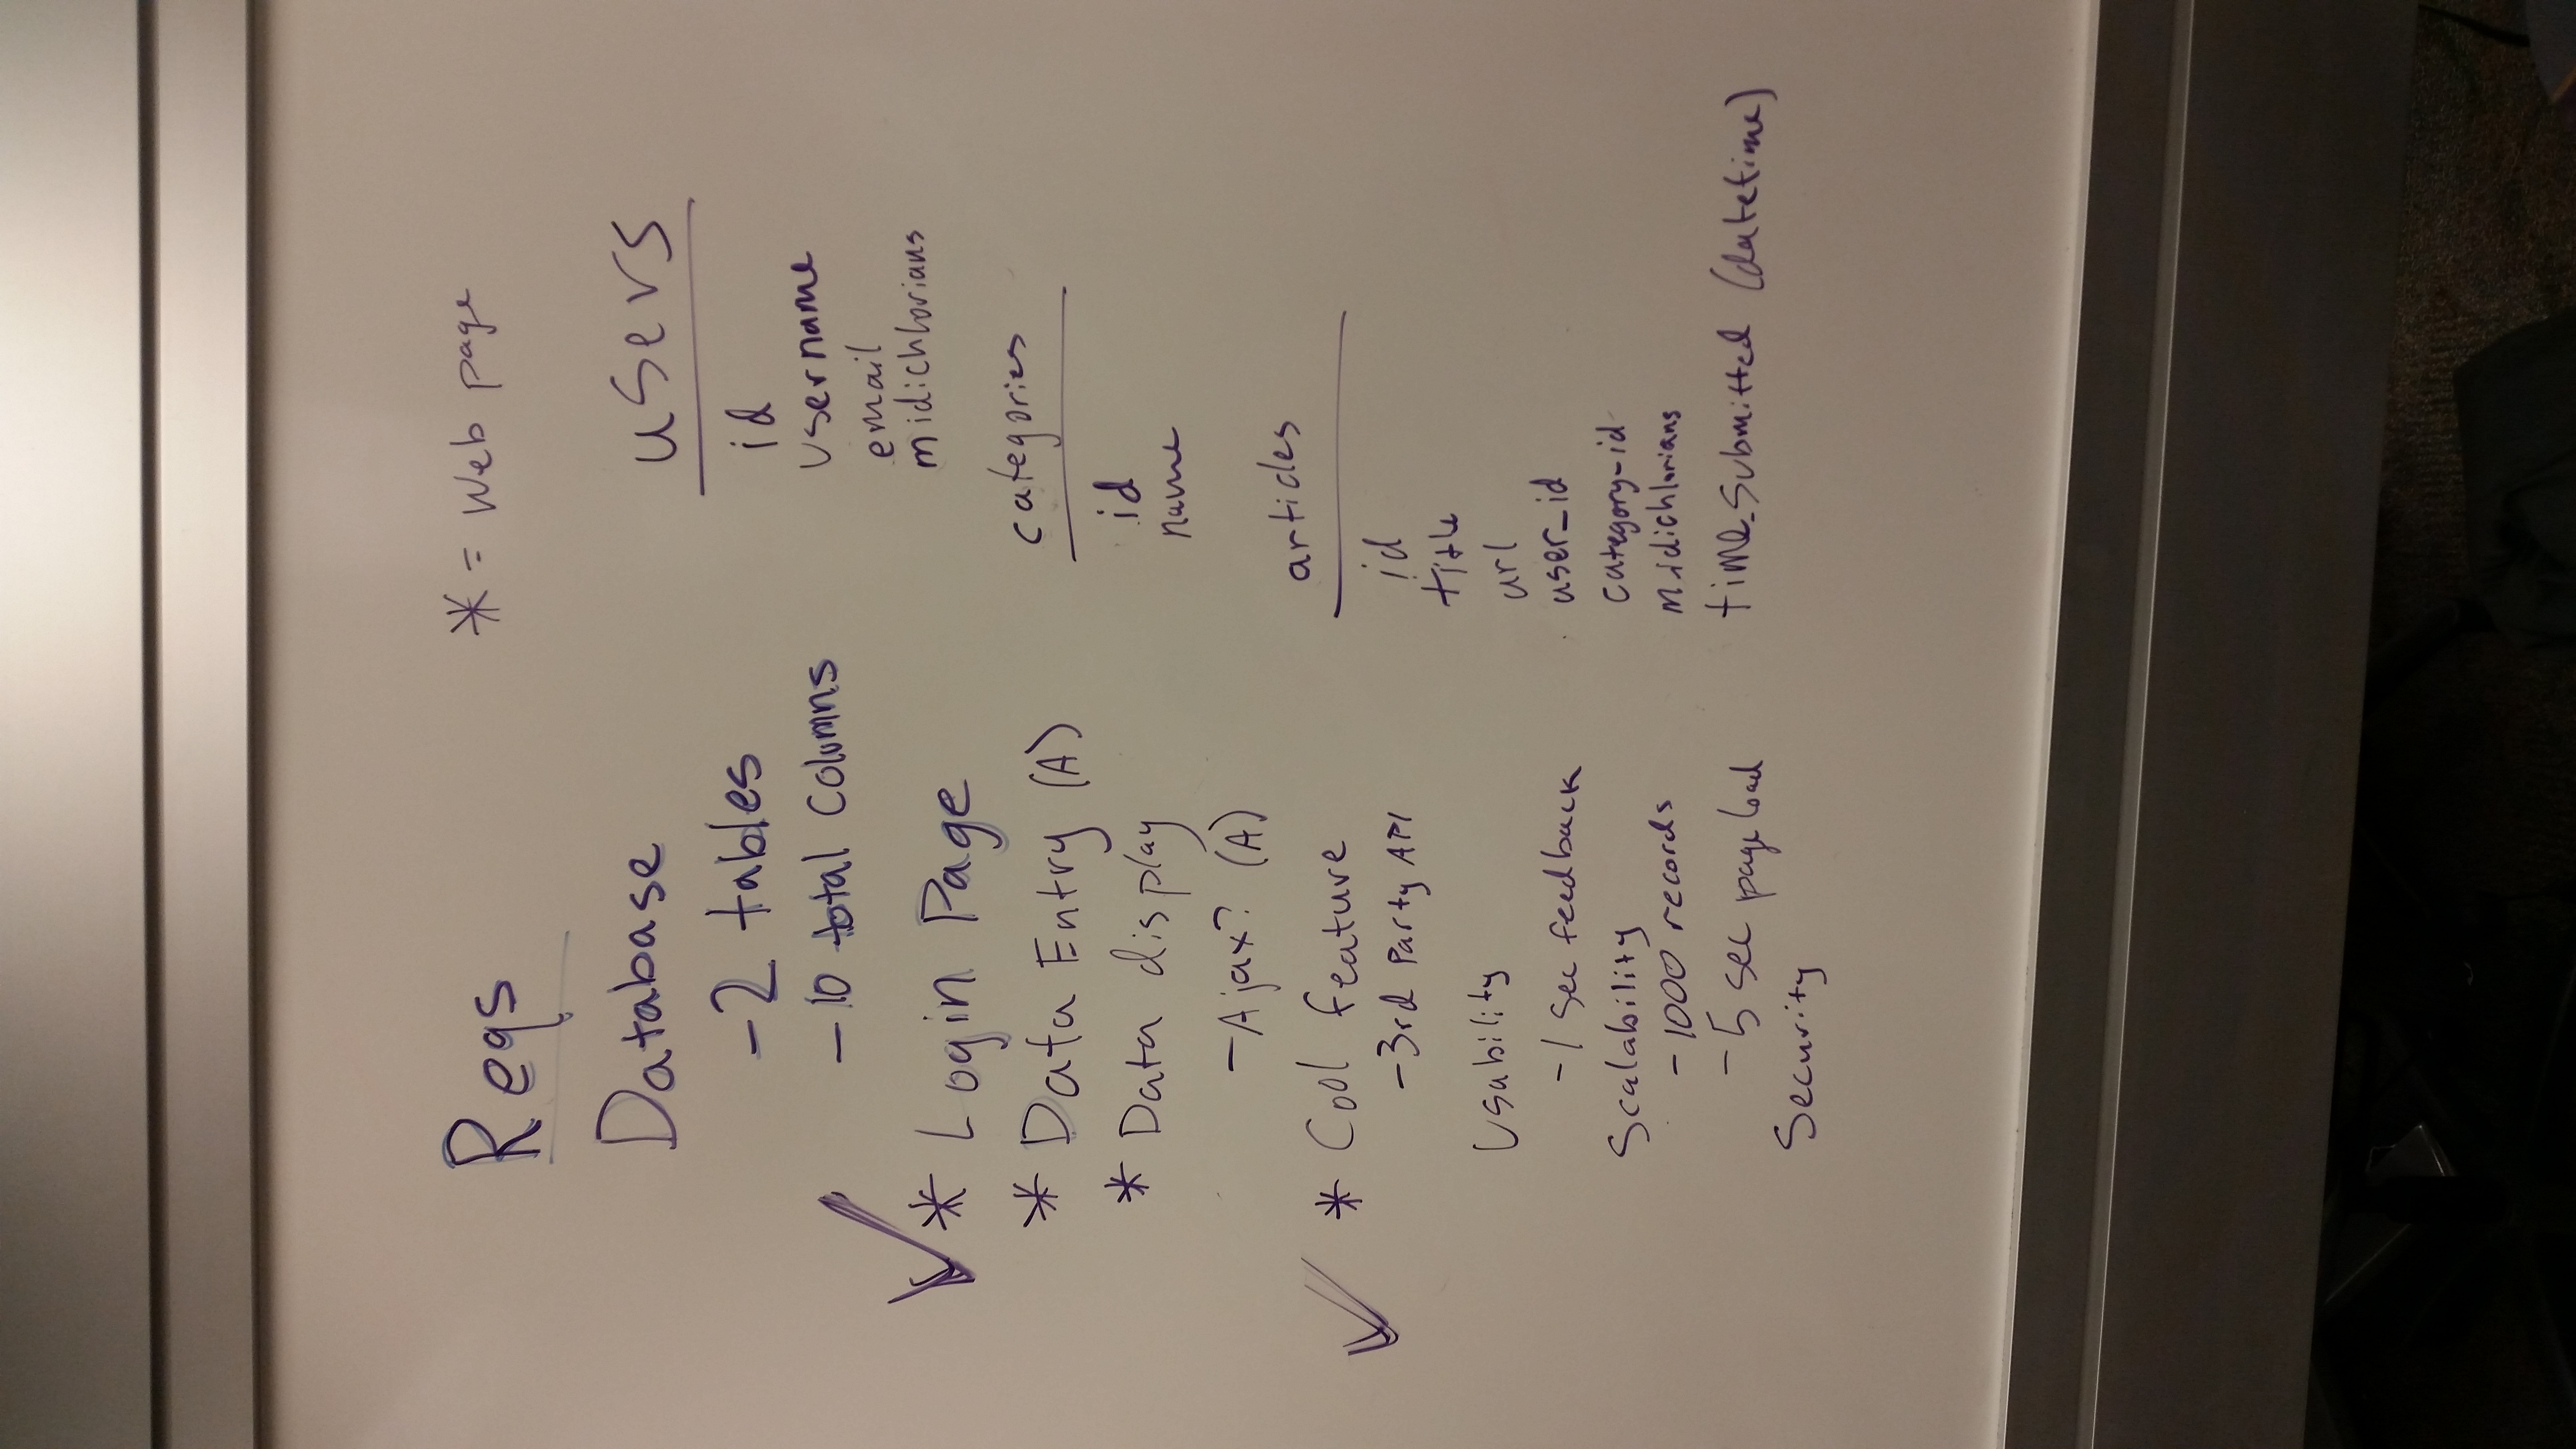 Reqs
* = Web page
Database
-2 tables
-10 total Columns
* Login Page
* Data Entry (A)
* Data display
-Ajax? (A)
* Cool feature
-3rd Party API
Usability
-1 sec feedback
Scalability
-1000 records
-5 sec page load
Security
users
id
username
email
midichlorians
categories
id
name
articles
id
title
url
user_id
category_id
midichlorians
time_submitted (datetime)